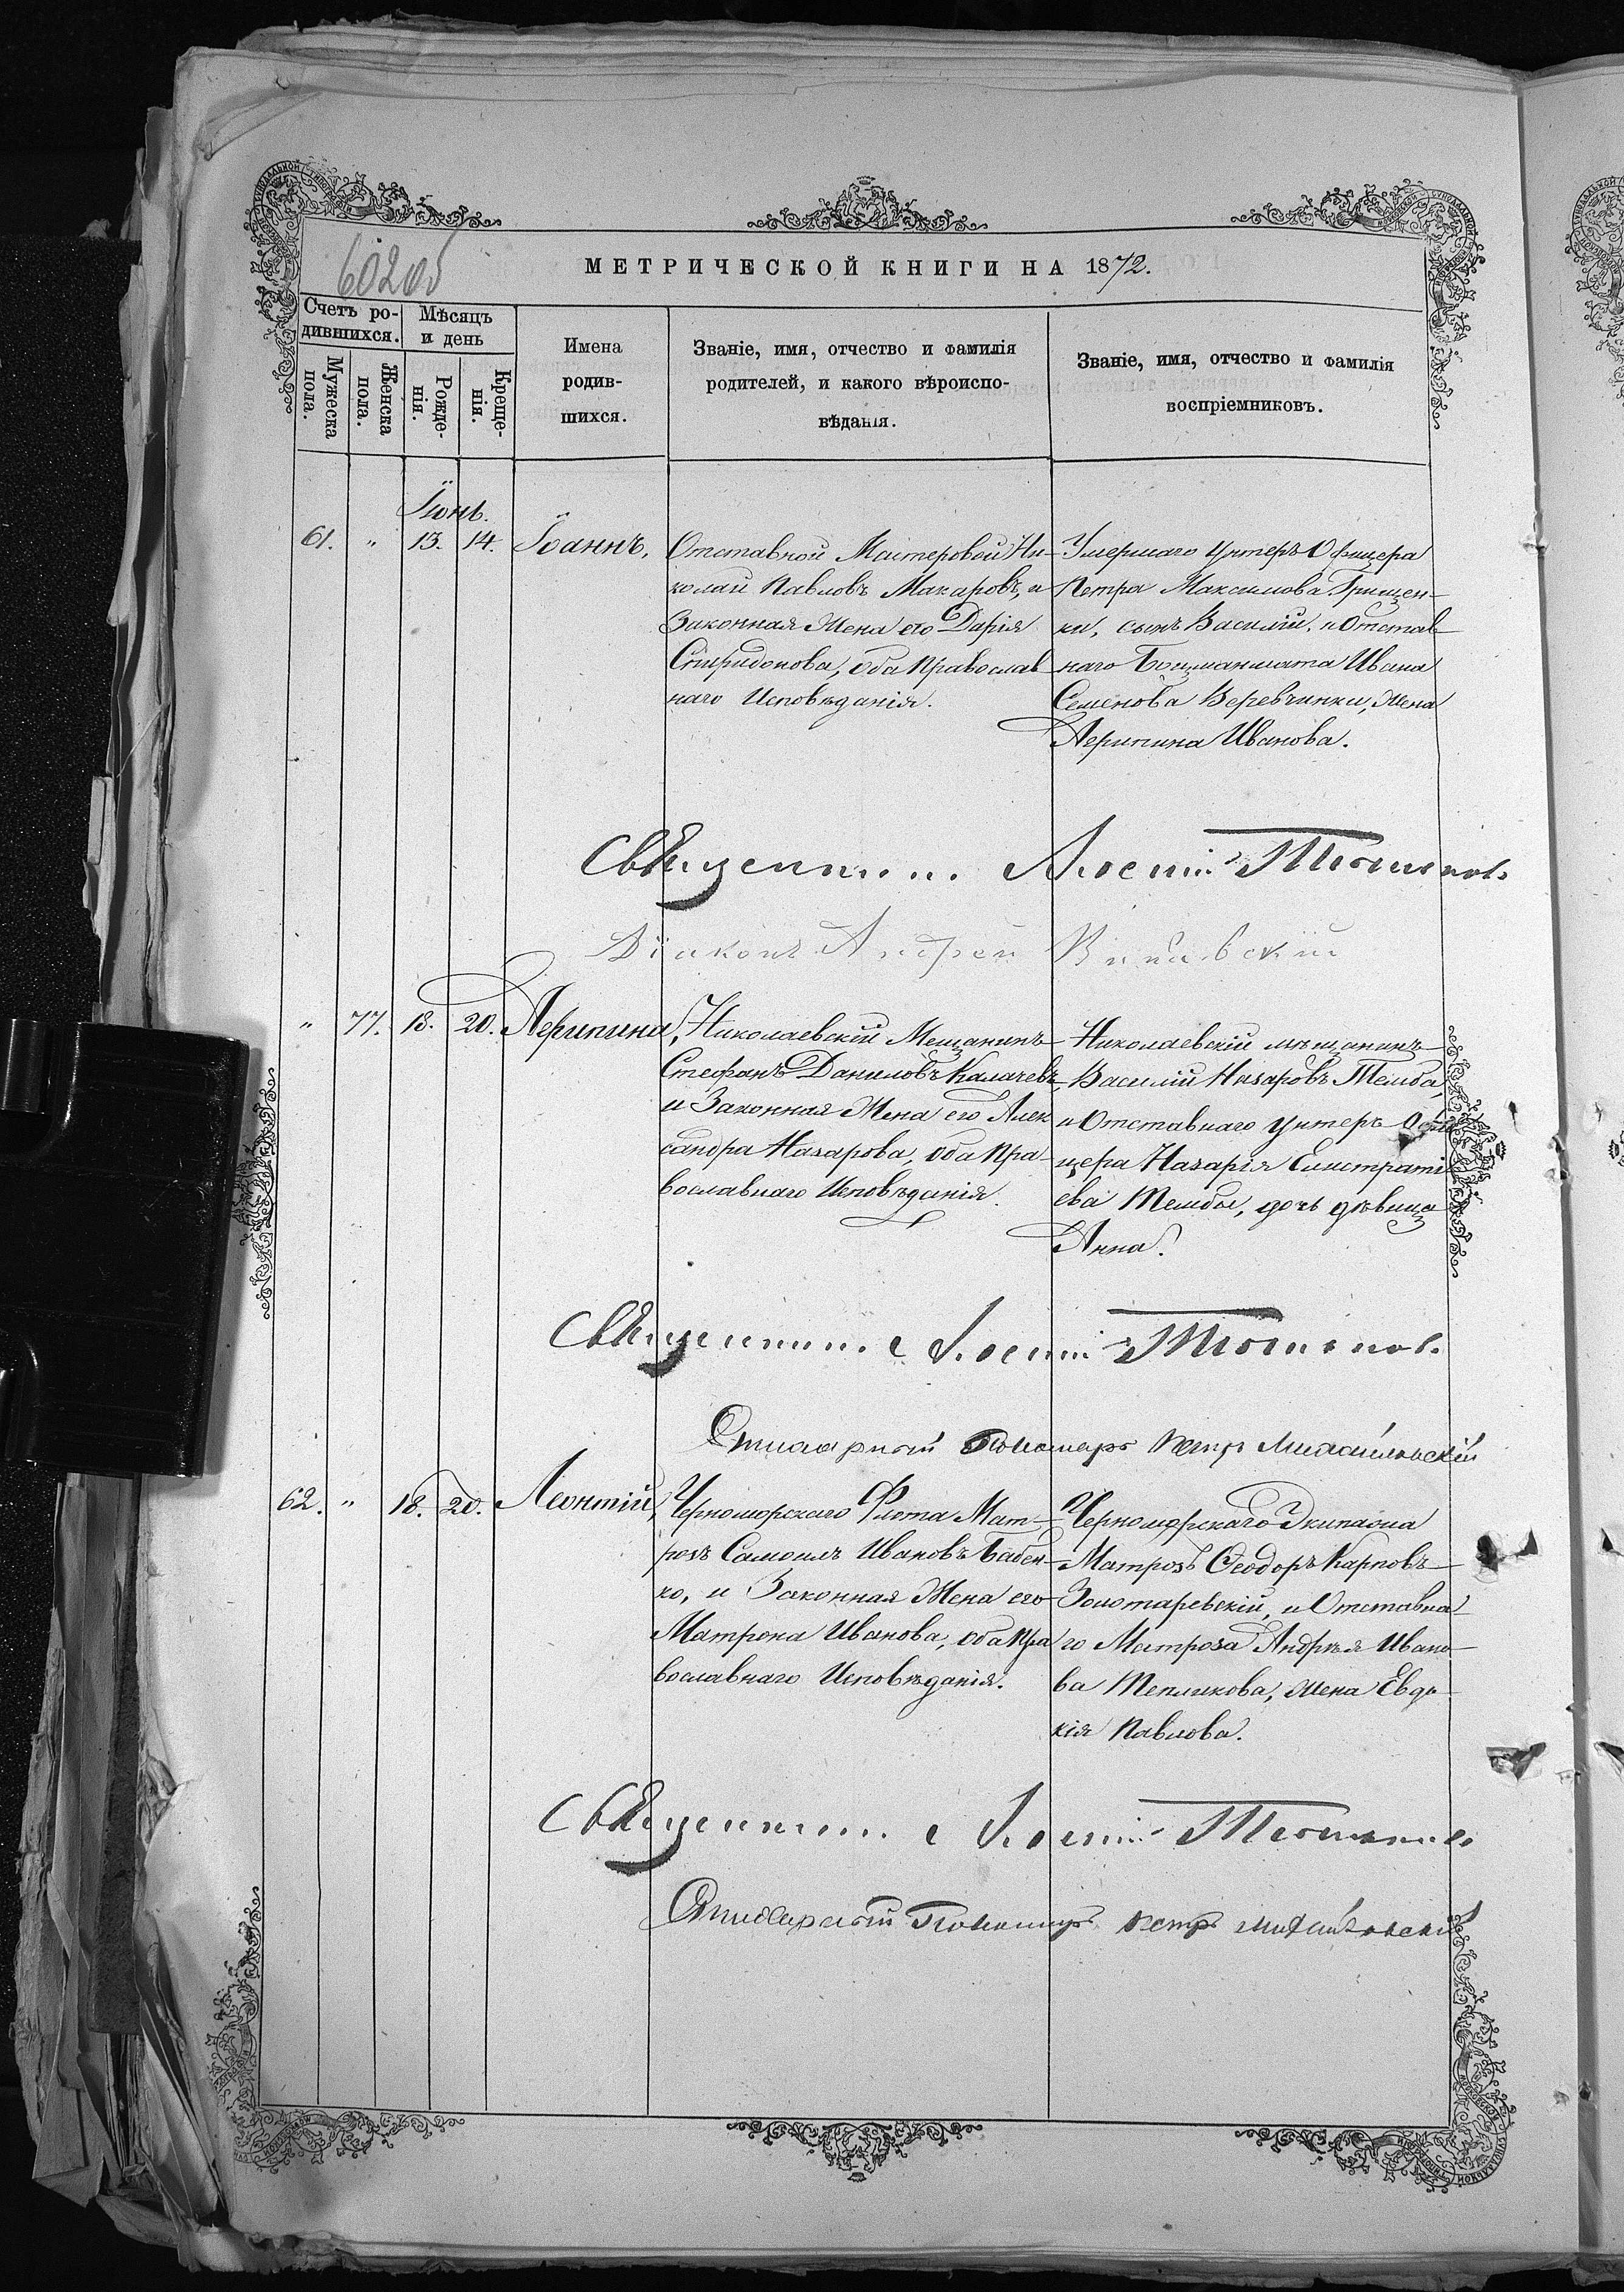 602об
МЕТРИЧЕСКОЙ КНИГИ НА 1872.
Счетъ ро-
дившихся.
Мѣсяцъ
и день
Мужеска
пола.
Женска
пола.
Рожде-
нія.
Креще-
нія.
Имена
родив-
шихся.
Званіе, имя, отчество и фамилія
родителей, и какого вѣроиспо-
вѣданія.
Званіе, имя, отчество и фамилія
воспріемниковъ.
Іюнь.
61. " 13. 14. Іоаннъ,
Отставной Мастеровой Ни-
колай Павловъ Макаровъ, и
Законная Жена его Дарія
Спиридонова, оба Православ
наго Исповѣданія.
Умершаго Унтеръ Офицера
Петра Максимова Грищен-
ки, сынъ Василій, и Отстав-
наго Боцманмата Ивана
Семенова Веревчинки, Жена
Агрипина Иванова.
Священник
Діаконъ Андрей
" 77. 18. 20. Агрипина,
Николаевскій Мещанинъ
Стефанъ Даниловъ Калачевъ,
и Законная Жена его Алек
сандра Назарова, оба Пра-
вославнаго Исповѣданія.
Николаевскій мѣщанинъ
Василій Назаровъ Темба,
и Отставнаго Унтеръ Офи
цера Назарія Евстраті
ева Тембы, дочь дѣвица
Анна.
Священник
Пономарь Петръ Михайловскій
62. " 18. 20. Леонтій,
Черноморскаго Флота Мат-
розъ Самоилъ Ивановъ Бабен-
ко, и Законная Жена его
Матрона Иванова, оба Пра
вославнаго Исповѣданія.
Черноморскаго Экипажа
Матрозъ Ѳеодоръ Карповъ
Золотаревскій, и Отставна-
го Матроза Андрея Ивано-
ва Теплякова, жена Евдо-
кія Павлова.
Священник
Пономарь Петръ Михайловскій